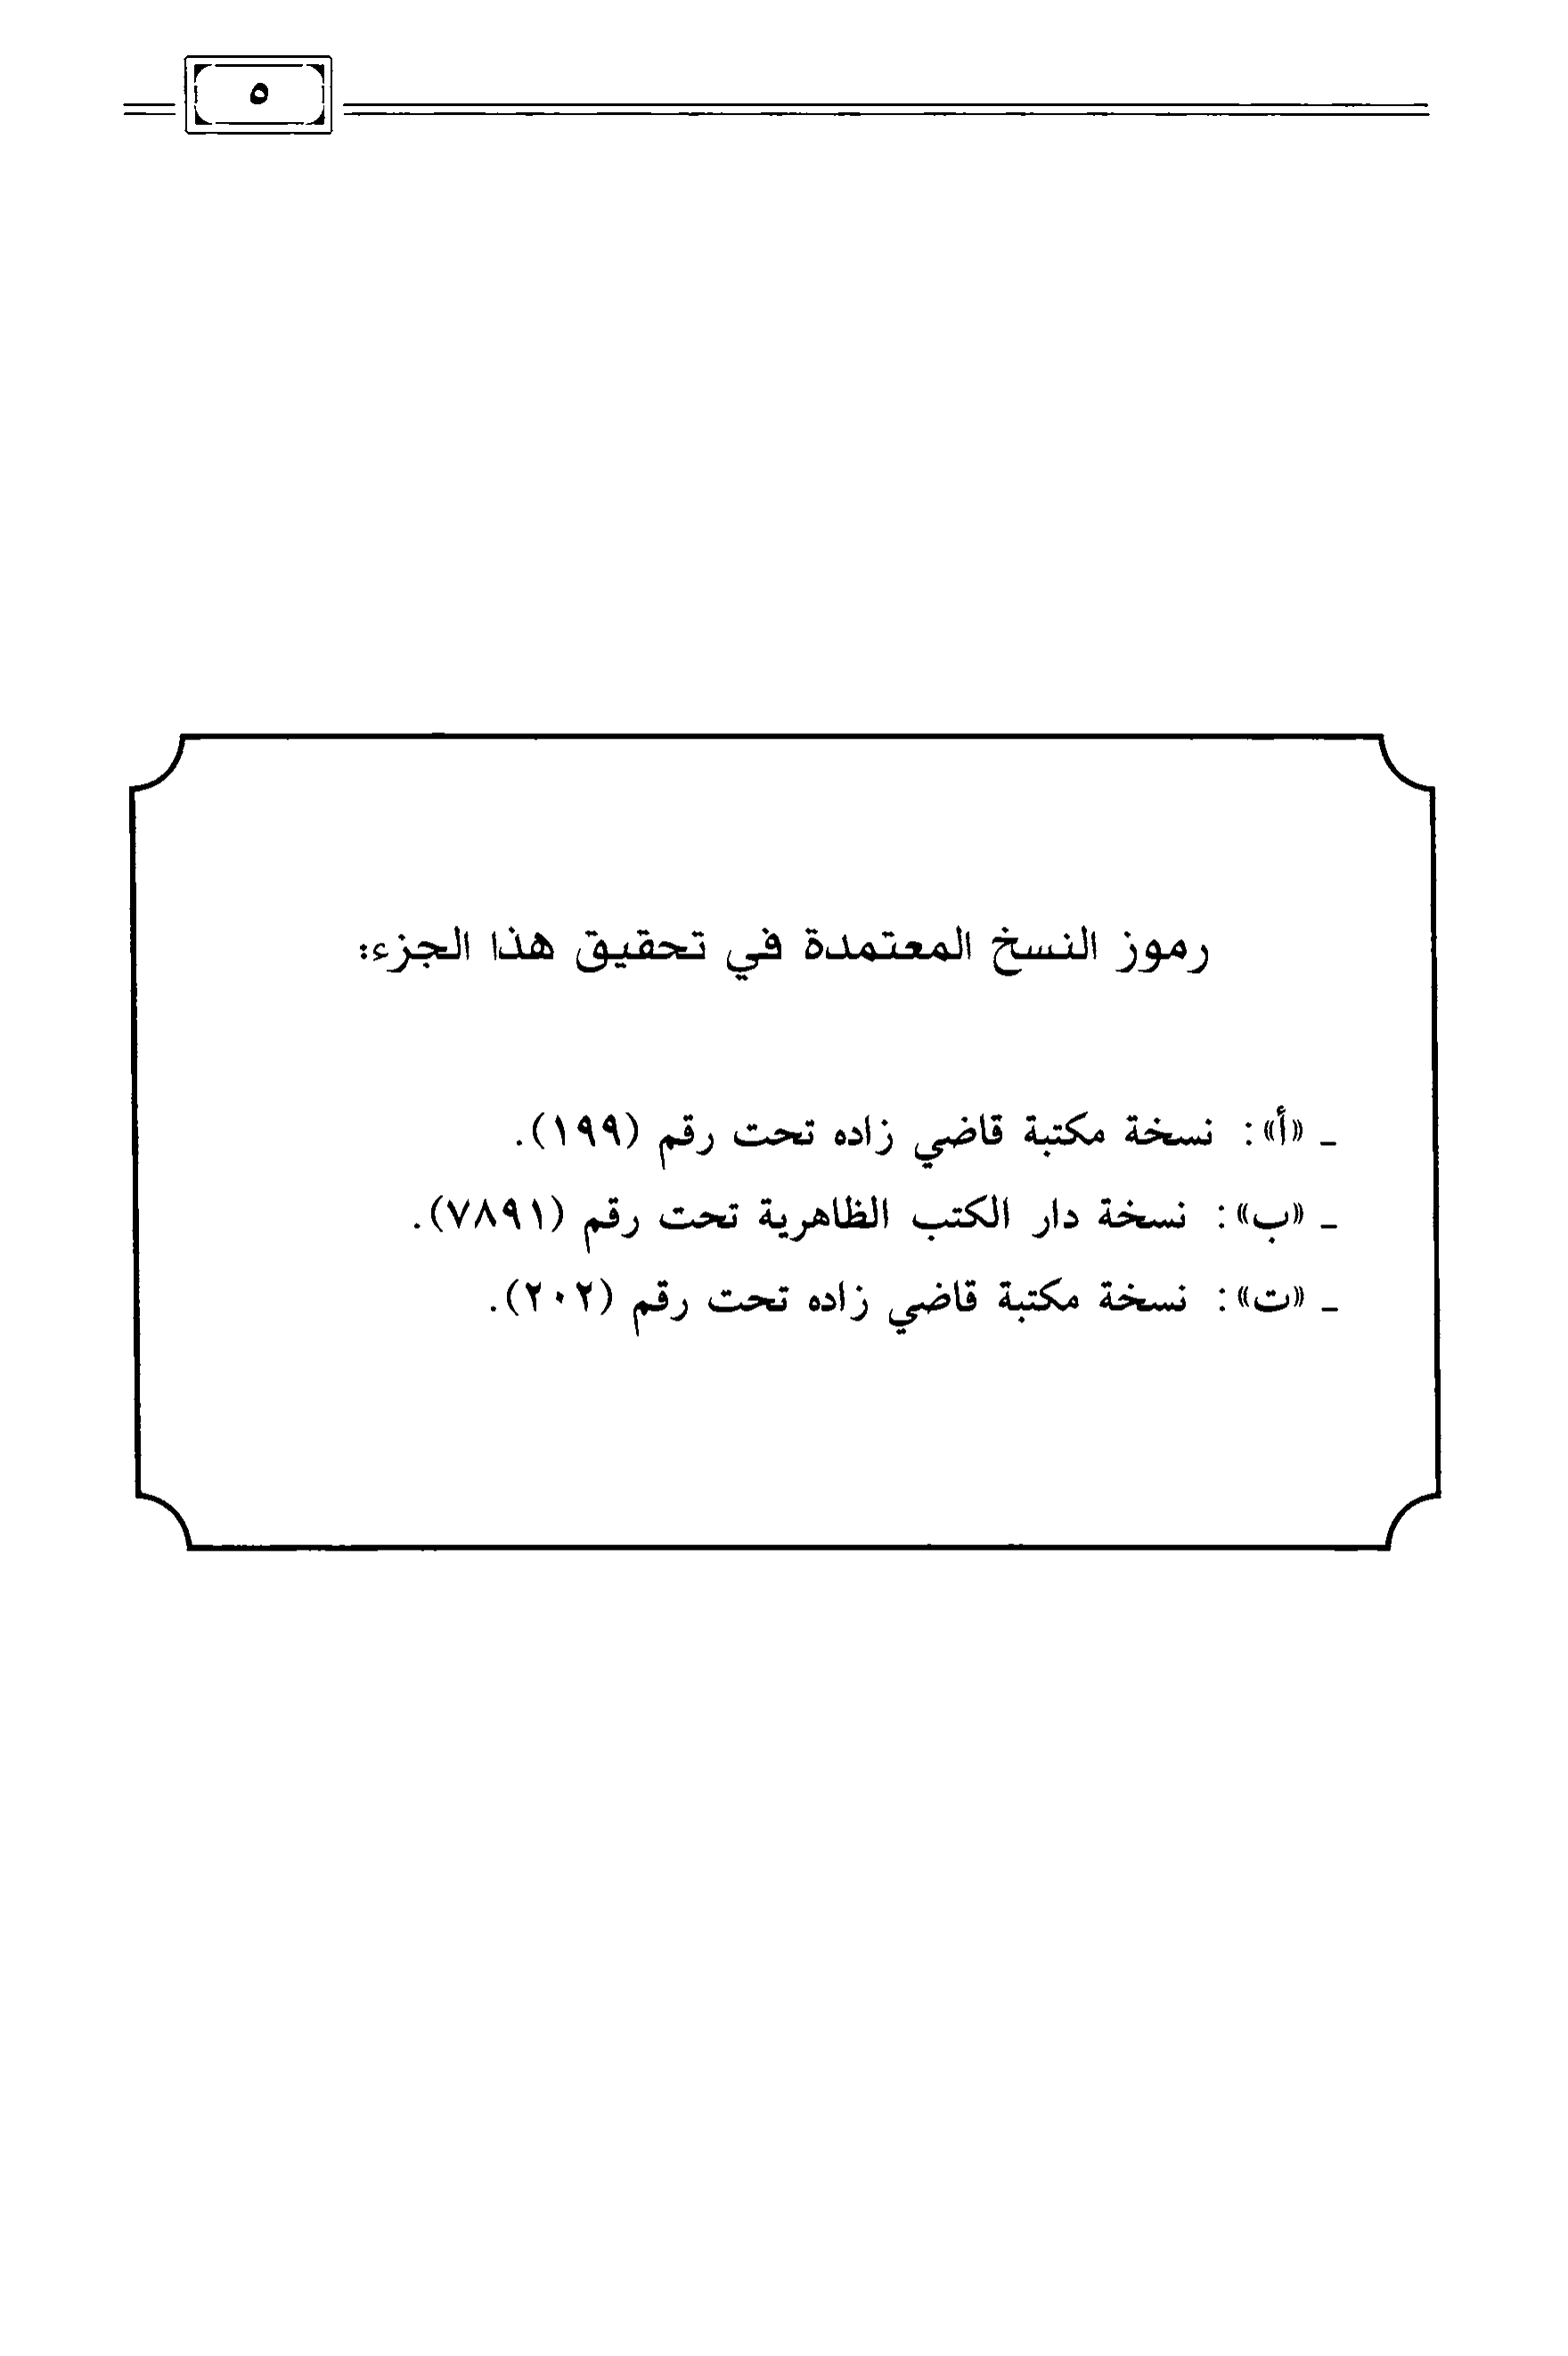 ٥
رموز النسخ المعتمدة في تحقيق هذا الجزء:
ـ «أ»: نسخة مكتبة قاضي زاده تحت رقم (١٩٩).
ـ «ب»: نسخة دار الكتب الظاهرية تحت رقم (٧٨٩١).
ـ «ت»: نسخة مكتبة قاضي زاده تحت رقم (٢٠٢).